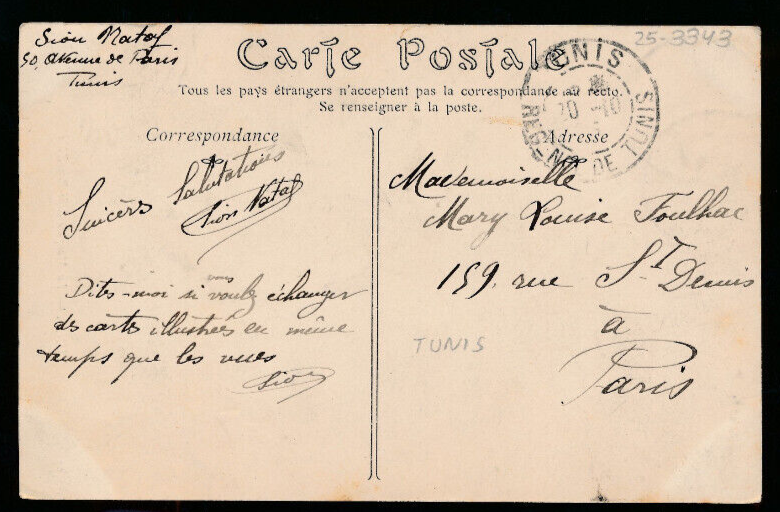 Sion Nataf
50, Avenue de Paris
Tunis
25-3343
Carte Postale
Tous les pays étrangers n'acceptent pas la correspondance au recto.
Se renseigner à la poste.
TUNIS
20 -10
REGNCE DE TUNIS
Correspondance
Adresse
Sincèrs Salutations
Sion Nataf
Dites-moi si vous voulez échanger
des cartes illustrées en même
temps que les vues
Sion
Mademoiselle
Mary Louise Foulhac
159. rue St Denis
à
Paris
TUNIS